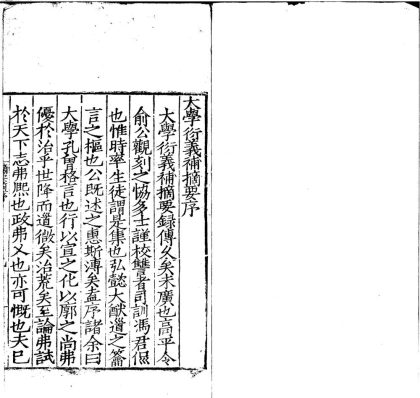 大學衍義補摘要序
大學衍義補摘要錄傳久矣未廣也高平令
俞公觀刻之恊多士謹校讐者司訓馮君偘
也惟時率生徒謂是集也弘懿大猷道之籥
言之樞也公既述之惠斯溥矣盍序諸余曰
大學孔曾格言也行以宣之化以廓之尚弗
優於治乎世降而道微矣治荒矣至論弗試
於天下志弗熙也政弗乂也亦可慨也夫已